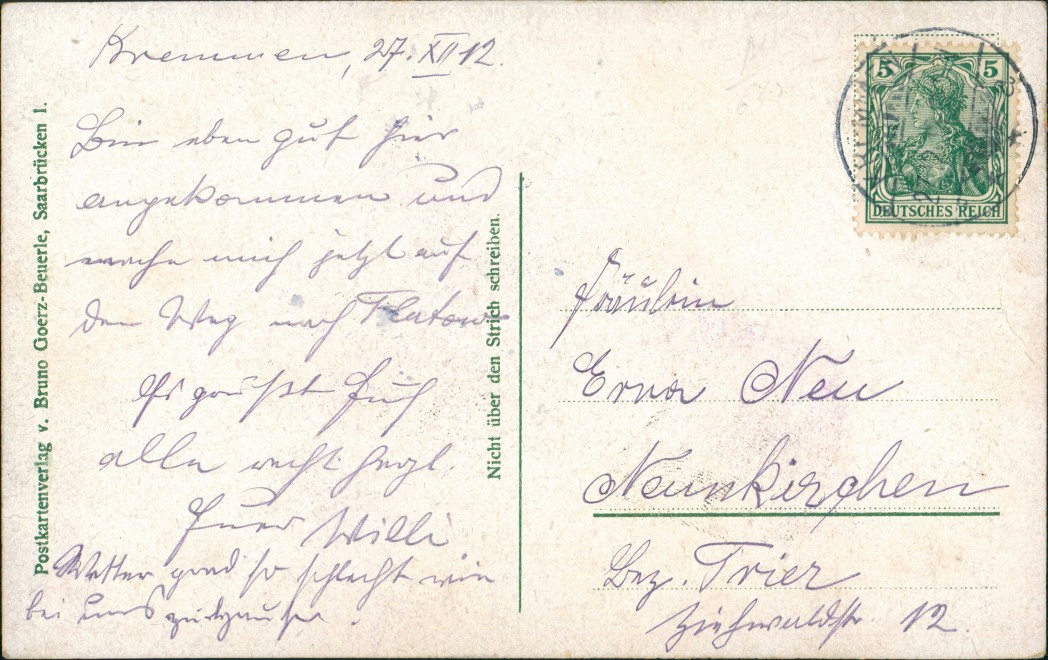 Kremmen, 27. XII 12.
Bin eben gut hier
angekommen und
mache mich jetzt auf
den Weg nach Flatow
Es grüßt Euch
alle recht herzl.
Euer Willi
Wetter grad so schlecht wie
bei uns zuhause.
Postkartenverlag v. Bruno Goerz-Beuerle, Saarbrücken 1.
Nicht über den Strich schreiben.
5 5
DEUTSCHES REICH
Fräulein
Erna Neu
Neunkirchen
Bez. Trier
Ziehwaldstr. 12.